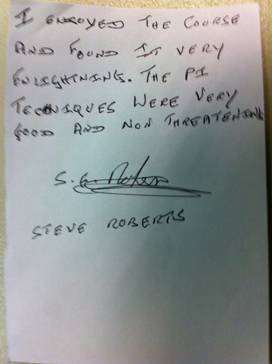 I ENJOYED THE COURSE
AND FOUND IT VERY
ENLIGHTNING. THE PI
TECHNIQUES WERE VERY
GOOD AND NON THREATENING
S.
STEVE ROBERTS